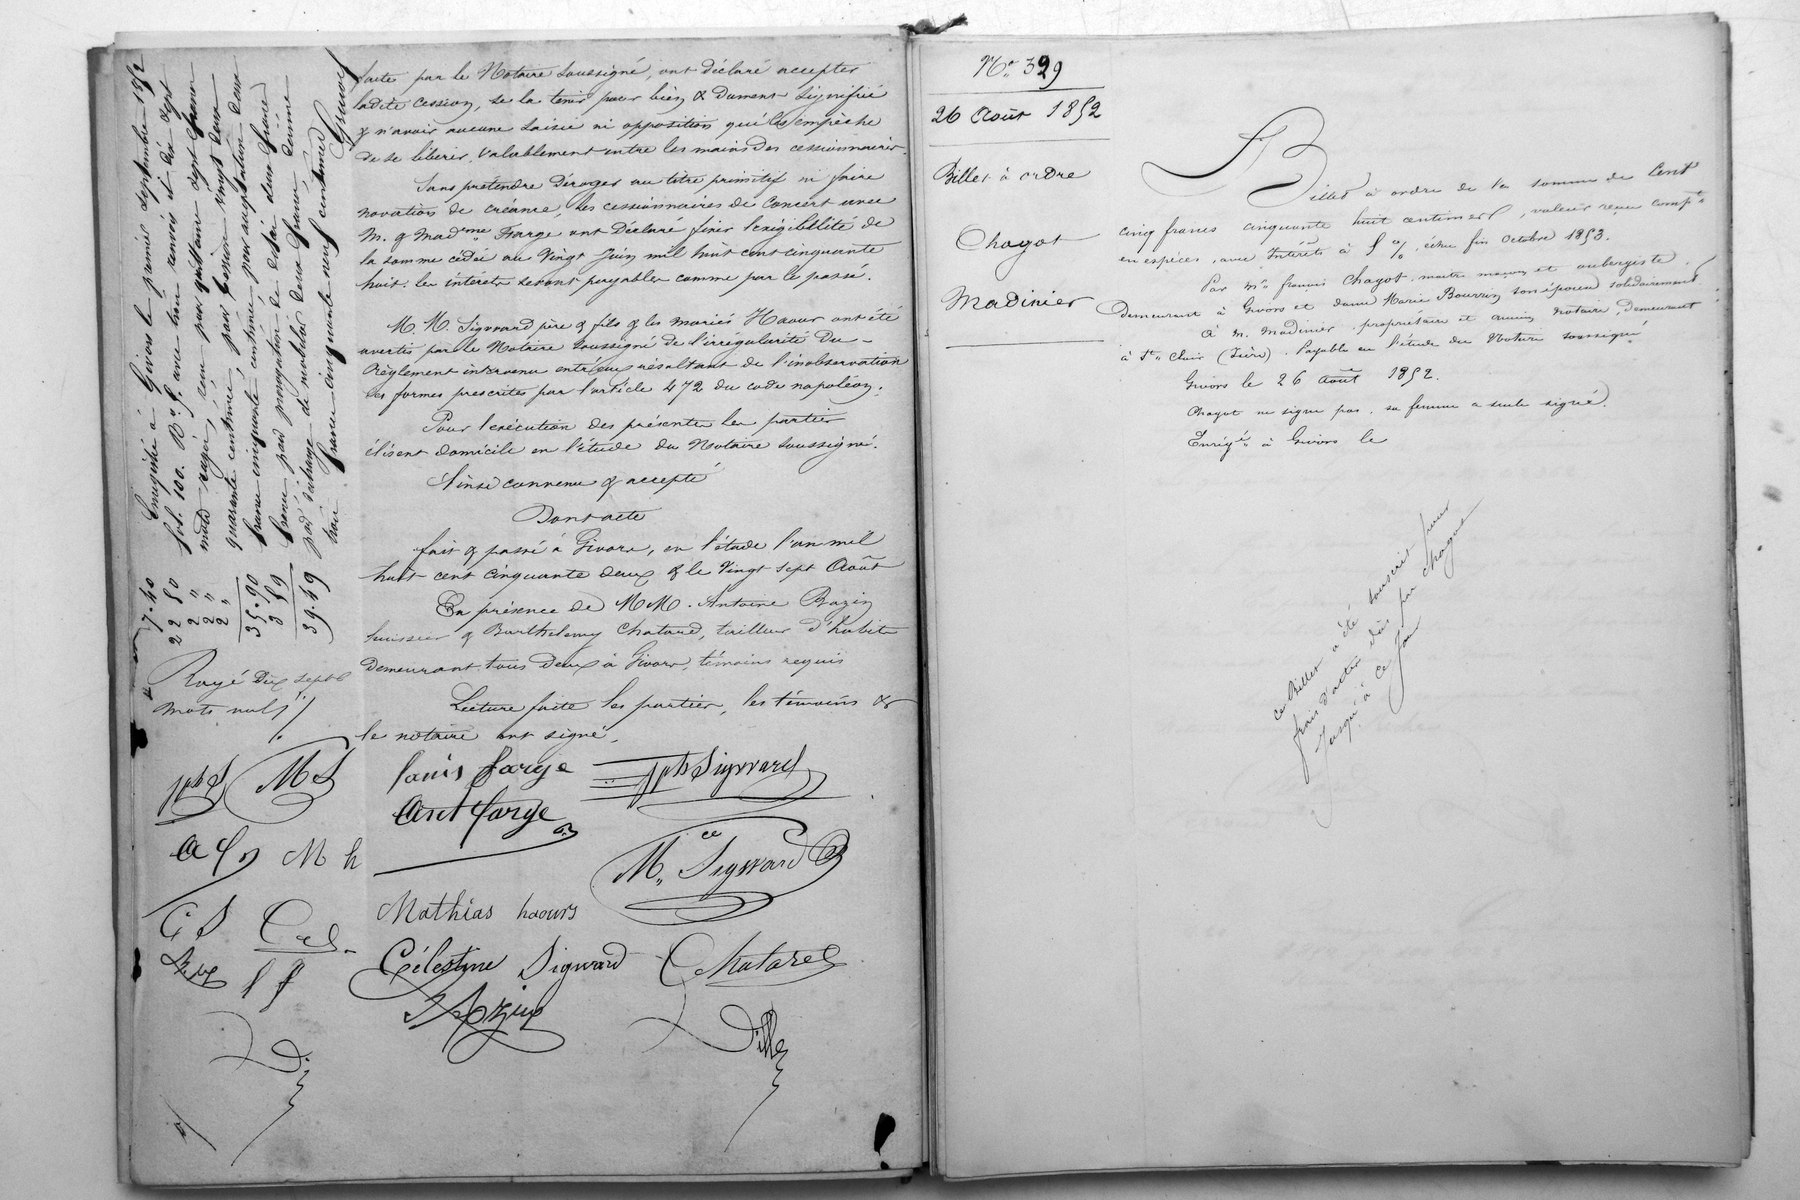 faite par le Notaire soussigné, ont déclaré accepter
ladite cession, se la tenir pour bien & dument signifiée
& n'avoir aucune saisie ni opposition qui les empêche
de se libérer valablement entre les mains des cessionnaires.
Sans prétendre déroger au titre primitif ni faire
novation de créance, les cessionnaires de concert avec
M. & Madme Farge ont déclaré fixer l'exigibilité de
la somme cédée au Vingt Juin mil huit cent cinquante
huit. les intérêts seront payables comme par le passé.
M. M. Sigward père & fils & les mariés Haour ont été
avertis par le Notaire soussigné de l'irrégularité du
règlement intervenu entr'eux résultant de l'inobservation
des formes prescrites par l'article 472 du code napoléon.
Pour l'exécution des présentes les parties
élisent domicile en l'étude du Notaire soussigné.
Ainsi convenu & accepté
Dont acte
fait & passé à Givors, en l'étude l'an mil
huit cent cinquante deux & le Vingt sept Août
En présence de MM. Antoine Bazin
huissier & Barthelemy Chatard, tailleur d'habits
demeurant tous deux à Givors, témoins requis
Lecture faite les parties, les témoins &
le notaire ont signé.
Rayé dix sept
mots nuls
Louis farge
Jph Sigward
Ant farge
Mce Sigward
Mathias haours
Célestine Sigward
Chatard
Bazin
Dille
Jph S
MS
M h
C S
Enregistré à Givors le premier septembre 1852
fol. 100. Ro 9. avec trois renvois et dix sept
mots rayés, reçu pour quittance sept francs
quarante centimes, pour cession vingt deux
francs cinquante centimes, pour
francs, pour prorogation de délai deux francs
trois francs cinquante neuf centimes
7.40
22 50
2 "
2 "
2 "
35.90
3 59
39.49
No. 329
26 Août 1852
Billet à ordre
Chagot
Madinier
Billet à ordre de la somme de Cent
cinq francs cinquante huit centimes, valeur reçue compte
en espèces, avec Intérêts à 5 %, échu fin octobre 1853.
Par Mr. francois Chagot, maitre maçon et aubergiste
demeurant à Givors et dame Marie Bourrin son épouse solidairement
à M. Madinier, propriétaire et ancien notaire, demeurant
à St. Clair (Isère). Payable en l'étude du Notaire soussigné
Givors le 26 Août 1852.
Chagot ne signe pas. sa femme a seule signé.
Enrigé à Givors le
ce Billet a été souscrit pour
frais d'actes dûs par Chagot
Jusqu'à ce Jour